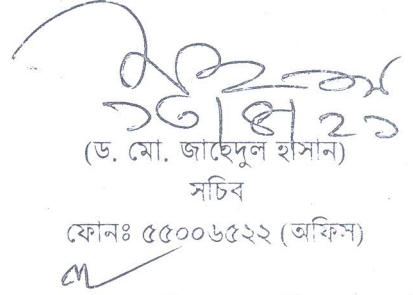 (ড. মো. জাহেদুল হাসান)
সচিব
ফোনঃ ৫৫০০৬৫২২ (অফিস)